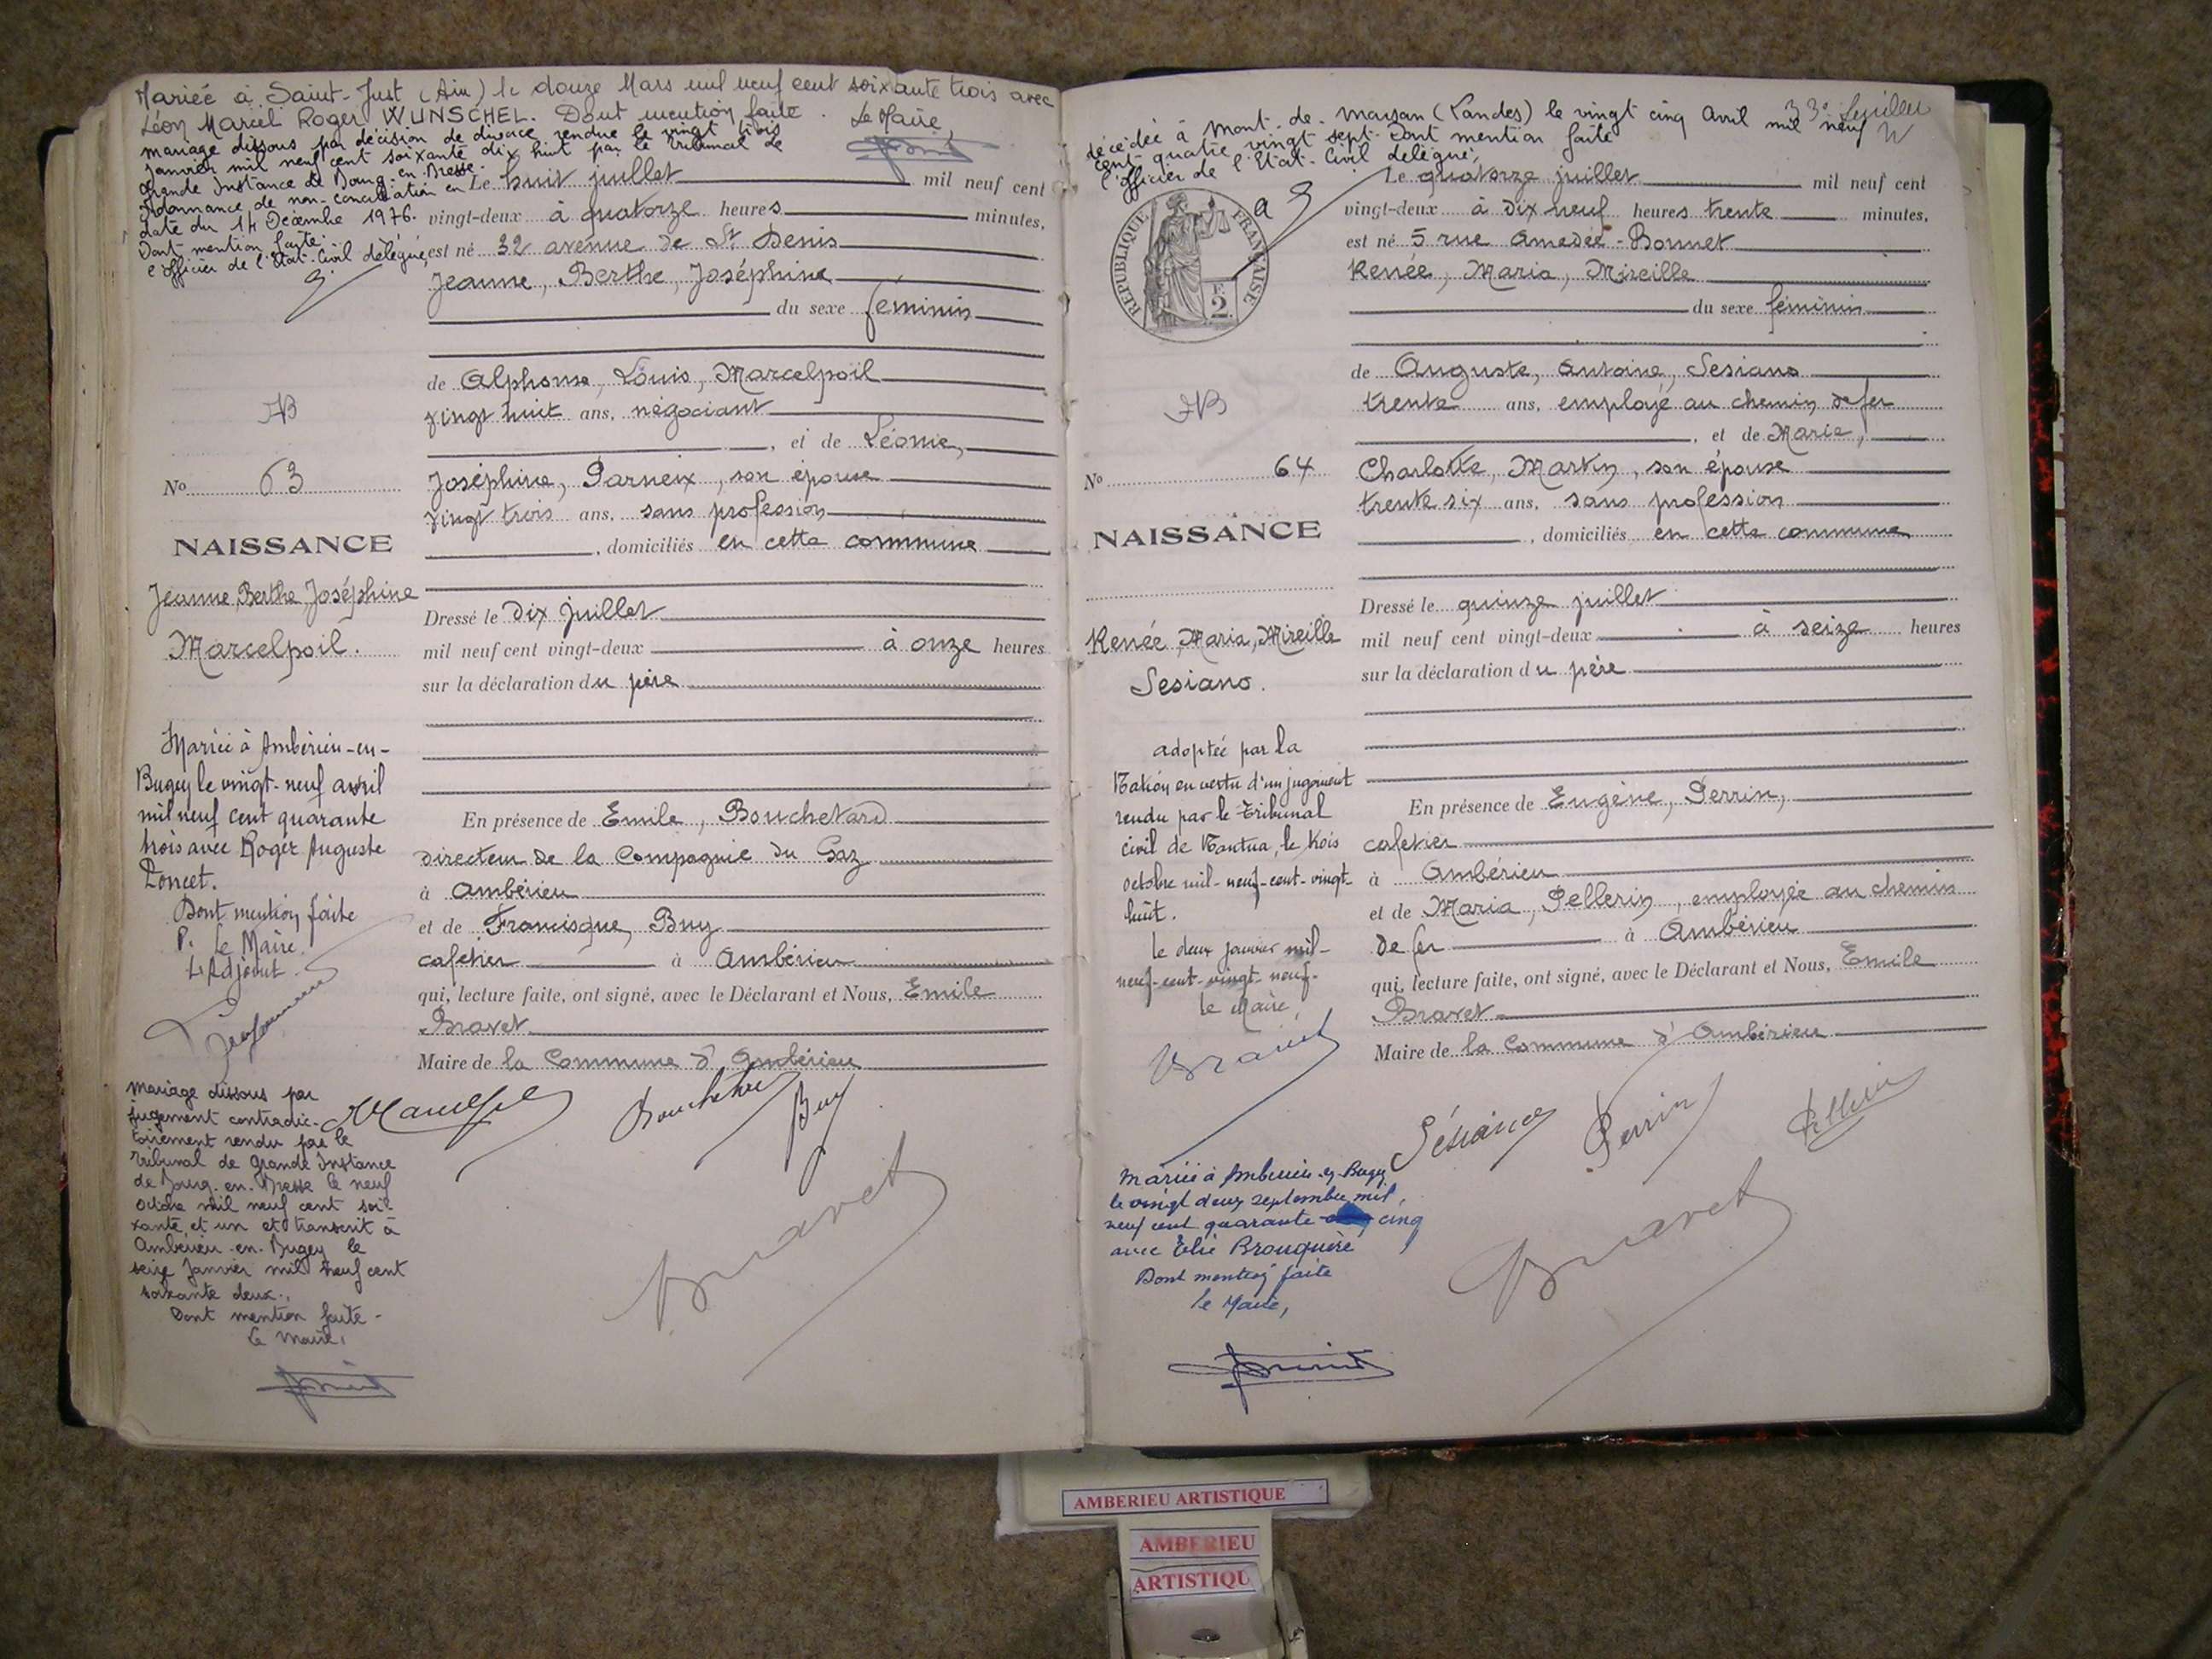 Mariée à Saint-Just (Ain) le douze Mars mil neuf cent soixante trois avec
Léon Marcel Roger WUNSCHEL. Dont mention faite. Le Maire,
mariage dissous par décision de divorce rendue le vingt trois
janvier mil neuf cent soixante dix huit par le Tribunal de
Grande Instance de Bourg-en-Bresse.
Ordonnance de non-conciliation en
date du 14 Décembre 1976.
Dont mention faite.
l'officier de l'Etat-Civil délégué,
Le huit juillet mil neuf cent
vingt-deux à quatorze heures minutes,
est né 32 avenue de St Denis
Jeanne, Berthe, Joséphine
du sexe féminin
de Alphonse, Louis, Marcelpoil
vingt huit ans, négociant
, et de Léonie,
Joséphine, Parneix, son épouse
vingt trois ans, sans profession
, domiciliés en cette commune
Dressé le dix juillet
mil neuf cent vingt-deux à onze heures
sur la déclaration du père
En présence de Emile, Bouchetard
directeur de la Compagnie du Gaz
à Ambérieu
et de Francisque, Buy
cafetier à Ambérieu
qui, lecture faite, ont signé, avec le Déclarant et Nous, Emile
Bravet
Maire de la Commune d'Ambérieu
Buy
Bravet
AB
No 63
NAISSANCE
Jeanne, Berthe, Joséphine
Marcelpoil.
Mariée à Ambérieu-en-
Bugey le vingt-neuf avril
mil neuf cent quarante
trois avec Roger Auguste
Poncet.
Dont mention faite
P. Le Maire.
L'Adjoint
mariage dissous par
jugement contradic-
toirement rendu par le
Tribunal de Grande Instance
de Bourg-en-Bresse le neuf
octobre mil neuf cent soi-
xante et un et transcrit à
Ambérieu-en-Bugey le
seize janvier mil neuf cent
soixante deux.
Dont mention faite-
Le Maire,
33e feuillet
décédée à Mont-de-Marsan (Landes) le vingt cinq Avril mil neuf
cent quatre vingt sept. Dont mention faite
l'officier de l'Etat-Civil délégué,
RÉPUBLIQUE FRANÇAISE
F
2
Le quatorze juillet mil neuf cent
vingt-deux à dix neuf heures trente minutes,
est né 5 rue Amédée-Bonnet
Renée, Maria, Mireille
du sexe féminin
de Auguste, Antoine, Sesiano
trente ans, employé au chemin de fer
, et de Marie,
Charlotte, Martin, son épouse
trente six ans, sans profession
, domiciliés en cette commune
Dressé le quinze juillet
mil neuf cent vingt-deux à seize heures
sur la déclaration du père
En présence de Eugène, Perrin,
cafetier
à Ambérieu
et de Maria, Pellerin, employée au chemin
de fer à Ambérieu
qui, lecture faite, ont signé, avec le Déclarant et Nous, Emile
Bravet
Maire de la Commune d'Ambérieu
Sésiano Perrin
Bravet
AB
No 64
NAISSANCE
Renée, Maria, Mireille
Sesiano.
adoptée par la
Nation en vertu d'un jugement
rendu par le Tribunal
civil de Nantua, le trois
octobre mil-neuf-cent-vingt-
huit.
Le deux janvier mil-
neuf-cent-vingt-neuf.
Le Maire,
Bravet
Mariée à Ambérieu-en-Bugey
le vingt deux septembre mil
neuf cent quarante cinq
avec Elie Brouquère
Dont mention faite
Le Maire,
AMBERIEU ARTISTIQUE
AMBERIEU
ARTISTIQU